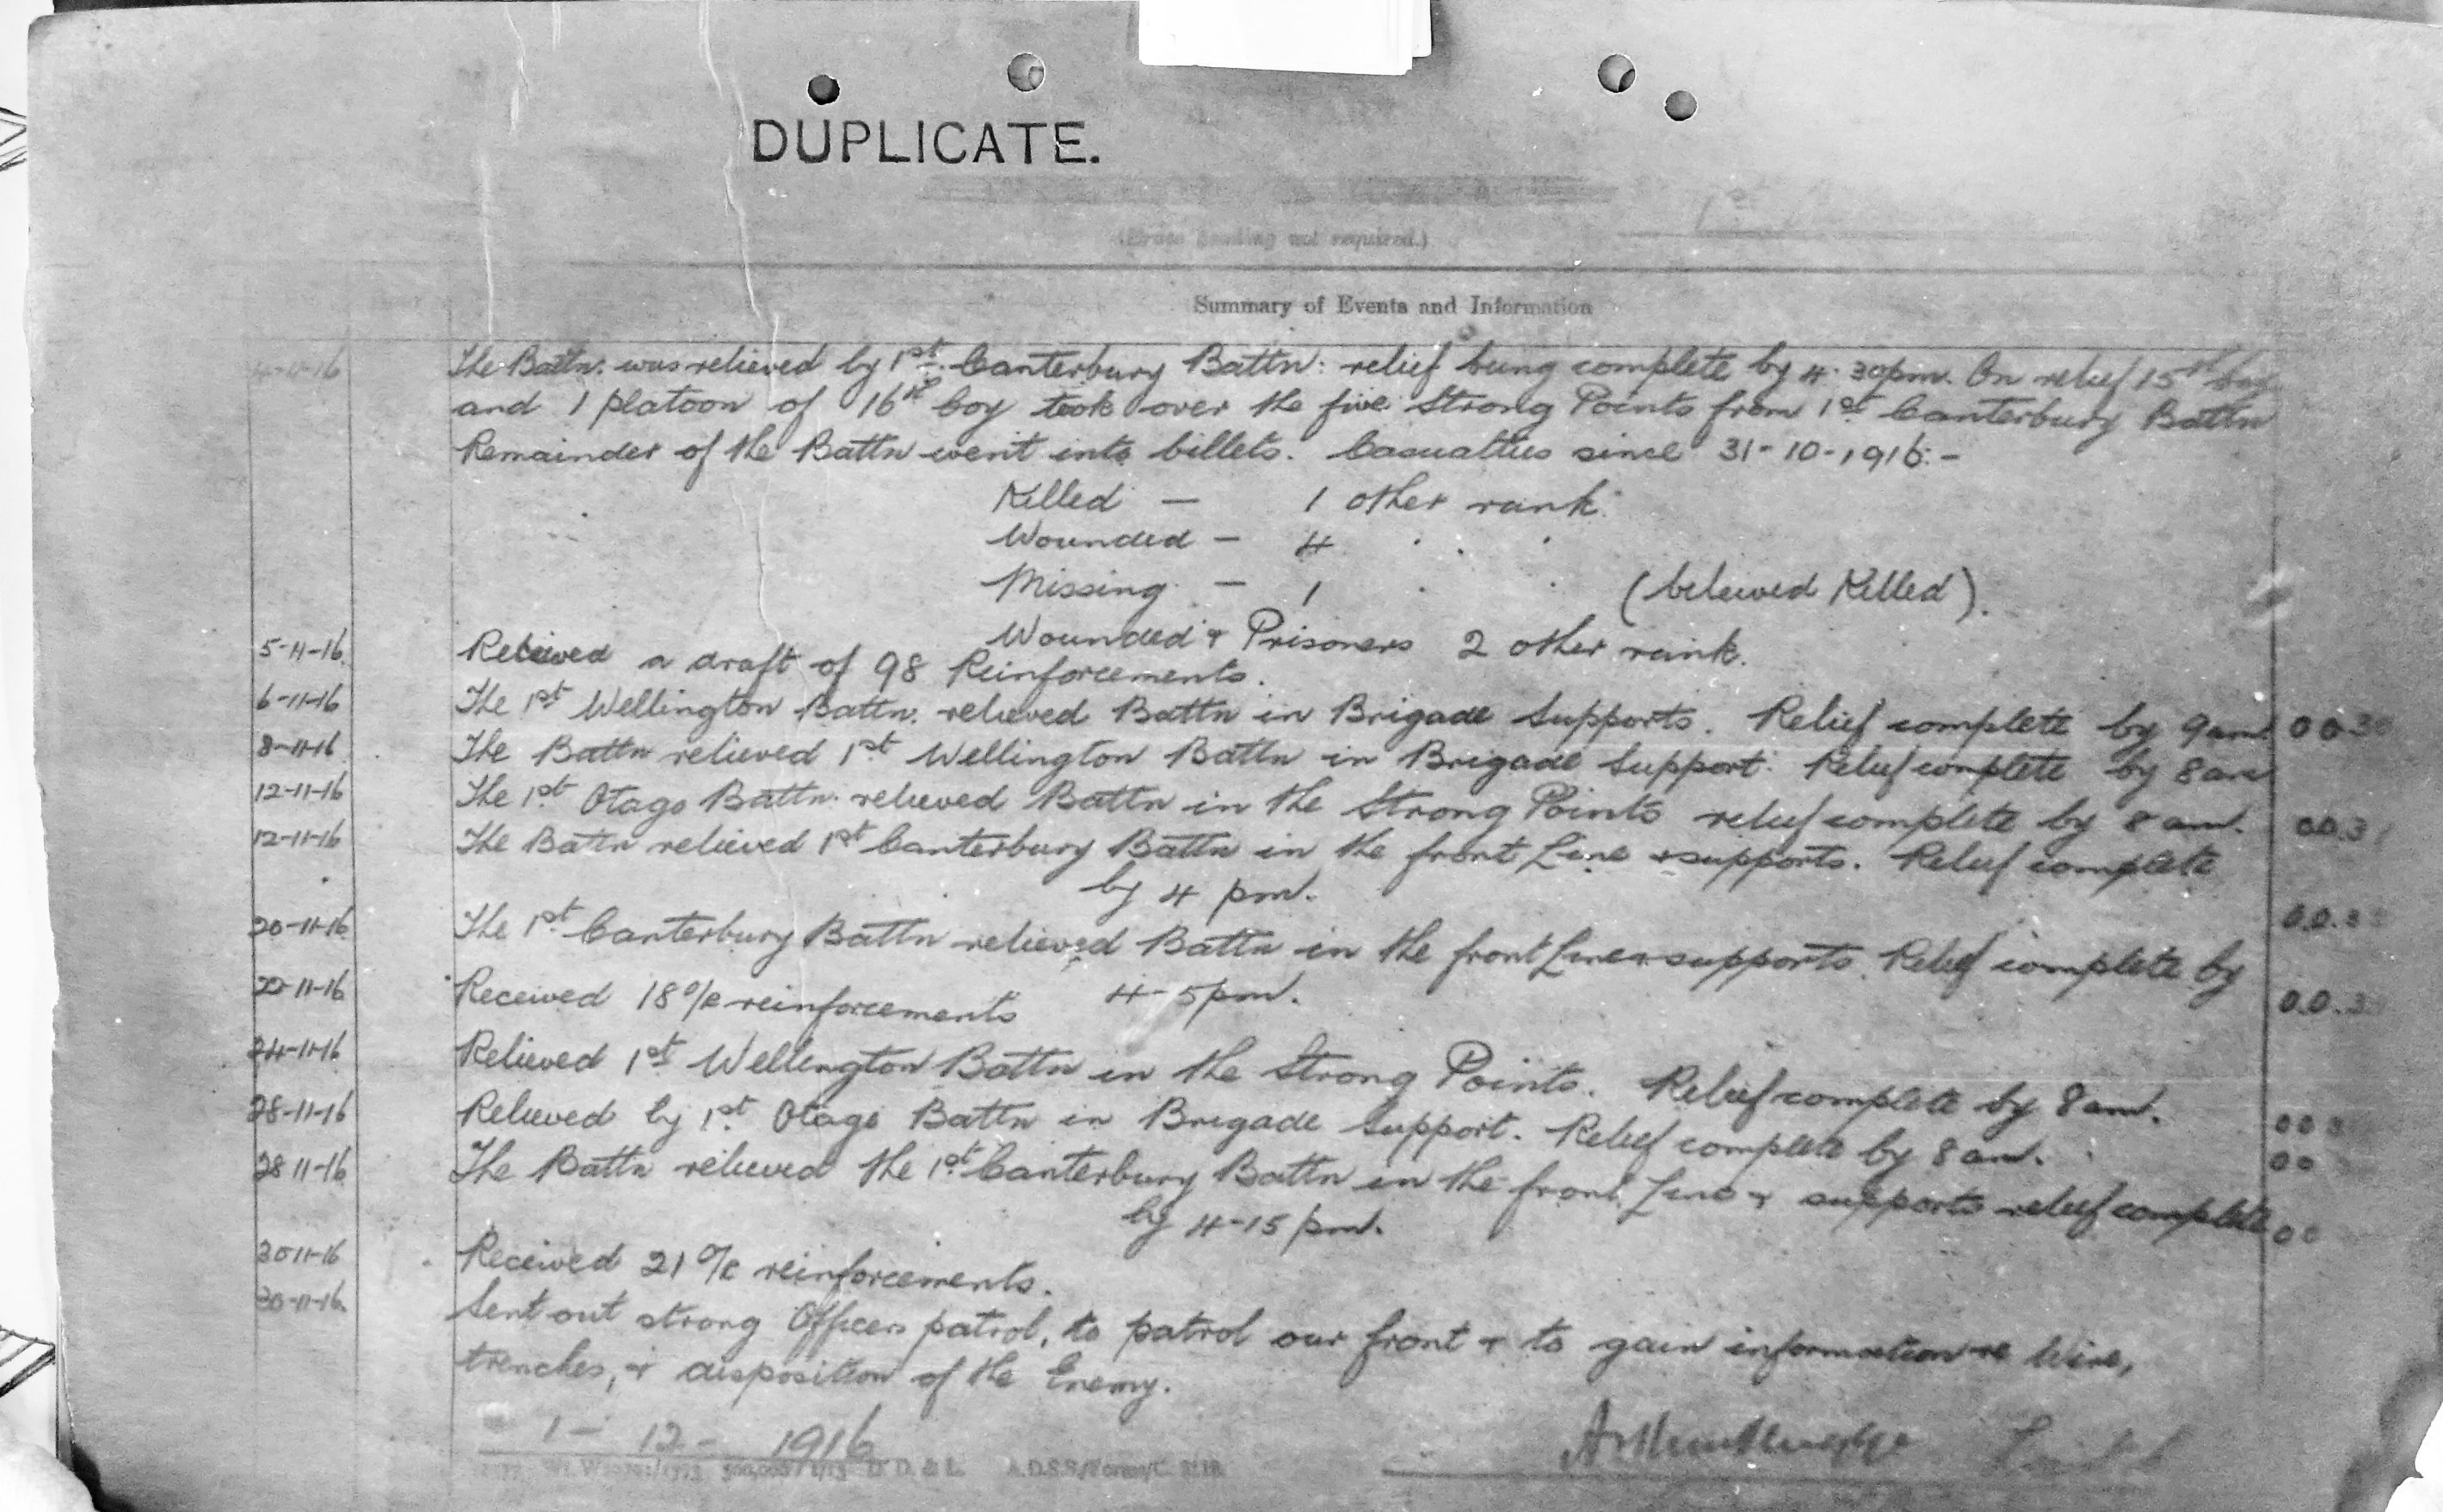 DUPLICATE.
1st
(Erase heading not required.)
Summary of Events and Information
4-11-16 The Battn. was relieved by 1st Canterbury Battn: relief being complete by 4.30pm. On relief 15th Coy
and 1 platoon of 16th Coy took over the five Strong Points from 1st Canterbury Battn
Remainder of the Battn went into billets. Casualties since 31-10-1916:-
Killed - 1 other rank.
Wounded - 4 . . .
Missing - 1 . . (believed Killed).
Wounded & Prisoners 2 other rank.
5-11-16 Received a draft of 98 Reinforcements.
6-11-16 The 1st Wellington Battn. relieved Battn in Brigade Supports. Relief complete by 9am 00.30
8-11-16 The Battn relieved 1st Wellington Battn in Brigade Support. Relief complete by 8am
12-11-16 The 1st Otago Battn. relieved Battn in the Strong Points relief complete by 8am. 00.3
12-11-16 The Battn relieved 1st Canterbury Battn in the front Line & supports. Relief complete
by 4 pm. 00.3
20-11-16 The 1st Canterbury Battn relieved Battn in the front Line & supports. Relief complete by
4-5pm. 00.3
22-11-16 Received 18 O/R reinforcements
24-11-16 Relieved 1st Wellington Battn in the Strong Points. Relief complete by 8am. 00 3
28-11-16 Relieved by 1st Otago Battn in Brigade Support. Relief complete by 8am. 00
28 11-16 The Battn relieved the 1st Canterbury Battn in the front Line & supports relief complete 00
by 4-15 pm.
30 11-16 Received 21 O/R reinforcements.
30-11-16. Sent out strong Officers patrol, to patrol our front & to gain information re Wire,
trenches, & disposition of the Enemy.
1 - 12 - 1916
D. D. & L. A.D.S.S./Forms/C. 2118.